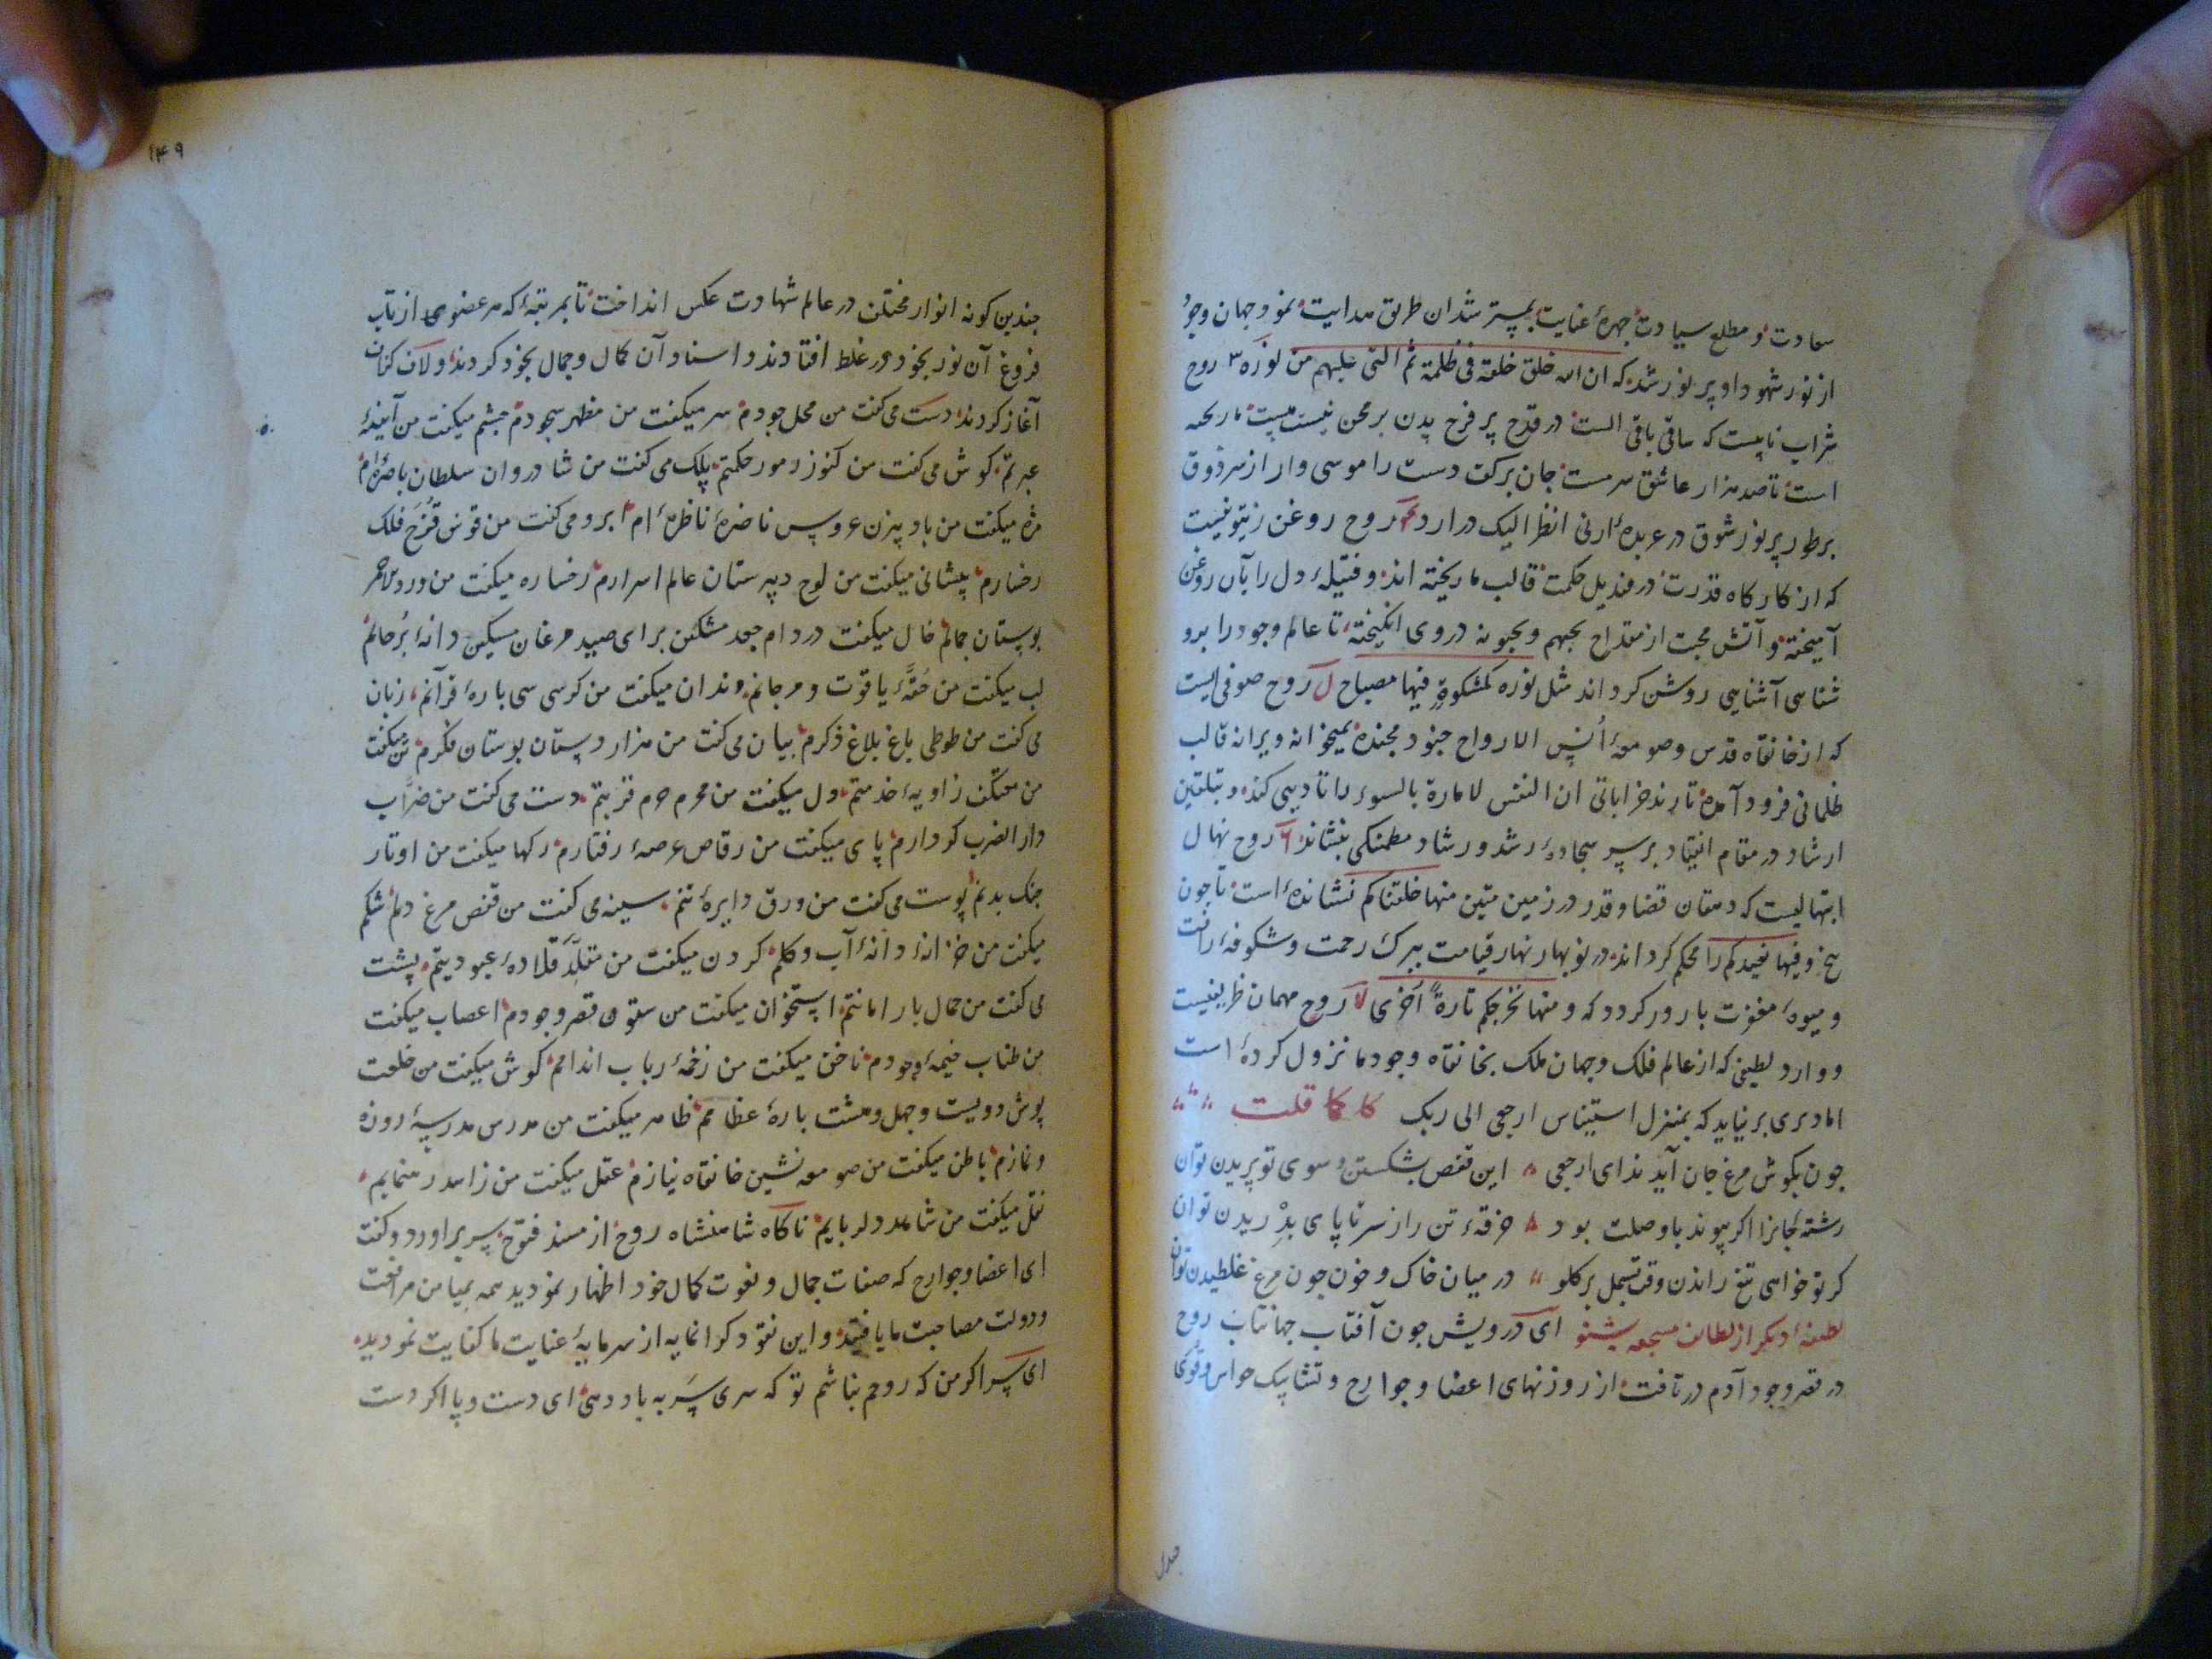 سعادت و مطلع سیادت جهرهٔ عنایت بمسترشدان طریق هدایت نمود جهان وجود
از نور شهود او پر نور شد که ان الله خلق خلقه فی ظلمة ثم القی علیهم من نوره ۳ روح
شرابِ نابیست که ساقی باقی الست در قدح پر فرح بدن بر محن نیست هست ما ریخته
است تا صد هزار عاشق سرمست جان بر کف دست را موسی وار از سر ذوق
بر طور پر نور شوق در عربدهٔ ارنی انظر الیک در آرد روح روغن زیتونیست
که از کارکاه قدرت در قندیل حکمت قالب ما ریخته اند و فتیلهٔ دل را بآن روغن
آمیخته و آتش محبت از مقداح یحبهم و یحبونه در وی انکیخته تا عالم وجود را برو
شناسی آشنایی روشن کرداند مثل نوره کمشکوةٍ فیها مصباح روح صوفی ایست
که از خانقاه قدس و صومعهٔ اُنس الارواح جنود مجندة بمیخانه ویرانه قالب
ظلمانی فرود آمده تا رند خراباتی ان النفس لامارة بالسوء را تادیبی کند و بتلقین
ارشاد در مقام انقیاد بر سر سجادهٔ رشد و رشاد مطمئنکی بنشاند ۶ روح نهال
ابتهالیست که دهقان قضا و قدر در زمین متین منها خلقناکم نشانده است تا جون
بیخ و فیها نعیدکم را محکم کرداند در نوبهار نهار قیامت ببرک رحمت و شکوفهٔ رافت
و میوهٔ مغفرت بارور کردد که و منها نخرجکم تارةً اُخری روح مهمان ظریفیست
و وارد لطیفی که از عالم فلک و جهان ملک بخانقاه وجود ما نزول کرده است
اما دیری بر نیاید که بمنزل استیناس ارجعی الی ربک کما قلت
جون بکوش مرغ جان آید ندای ارجعی این قفص بشکستن و سوی تو پریدن توان
رشتهٔ جانرا اکر پیوند با وصلت بود خرقهٔ تن را ز سر تا پای بدْریدن توان
کر تو خواهی تیغ راندن وقت بسمل بر کلو در میان خاک و خون جون مرغ غلطیدن توان
لطیفهٔ دیکر از لطایف مسجعه بشنو ای درویش جون آفتاب جهانتاب روح
در قصر وجود آدم در تافت از روزنهای اعضا و جوارح و تشابیک حواس و قُوی
جندین
۱۴۹
جندین کونه انوار مختلف در عالم شهادت عکس انداخت تا بمرتبهٔ که هر عضوی از تاب
فروغ آن نور بخود در غلط افتادند و اسناد آن کمال و جمال بخود کردند و لاف کنان
آغاز کردند دست می کفت من محل جودم سر میکفت من مظهر سجودم جشم میکفت من آیینهٔ
عبرتم کوش می کفت من کنوز رموز حکمتم پلک می کفت من شادروان سلطان باصره ام
مژه میکفت من بادبیزن عروس ناضرهٔ ناظره ام ابرو می کفت من قوس قُزَح فلک
رخسارم پیشانی میکفت من لوح دبیرستان عالم اسرارم رخساره میکفت من ورد احمر
بوستان جمالم خال میکفت در دام جعد مشکین برای صید مرغان مسکین دانهٔ پُر حالم
لب میکفت من حُقّهٔ یاقوت و مرجانم دندان میکفت من کرسی سی بارهٔ قرآنم زبان
می کفت من طوطی باغ بلاغ ذکرم بیان می کفت من هزاردستان بوستان فکرم تن میکفت
من معتکف زاویهٔ خدمتم دل میکفت من محرم حرم قربتم دست می کفت من ضرّاب
دار الضرب کردارم پای میکفت من رقاص عرصهٔ رفتارم رکها میکفت من اوتار
جنک بدنم پوست می کفت من ورق دایرهٔ تنم سینه می کفت من قفص مرغ دلم شکم
میکفت من خزانهٔ دانهٔ آب و کلم کردن میکفت من مقلَّد قلادهٔ عبودیتم پشت
می کفت من حمال بار امانتم استخوان میکفت من ستون قصر وجودم اعصاب میکفت
من طناب خیمهٔ وجودم ناخن میکفت من زخمهٔ رباب اندامم کوش میکفت من خلعت
پوش دویست و جهل و هشت بارهٔ عظامم ظاهر میکفت من مدرس مدرسهٔ روزه
و نمازم باطن میکفت من صومعه نشین خانقاه نیازم عقل میکفت من زاهد رهنمایم
نقل میکفت من شاهد دلربایم ناکاه شاهنشاه روح از مسند فتوح سر برآورد و کفت
ای اعضا و جوارح که صفات جمال و نعوت کمال خود اظهار نمودید همه بمیامن مرافقت
و دولت مصاحبت ما یافتید و این نقود کرانمایه از سرمایهٔ عنایت ما کفایت نمودید
ای سر اکر من که روحم نباشم تو که سری سَر به باد دهی ای دست و پا اکر دست